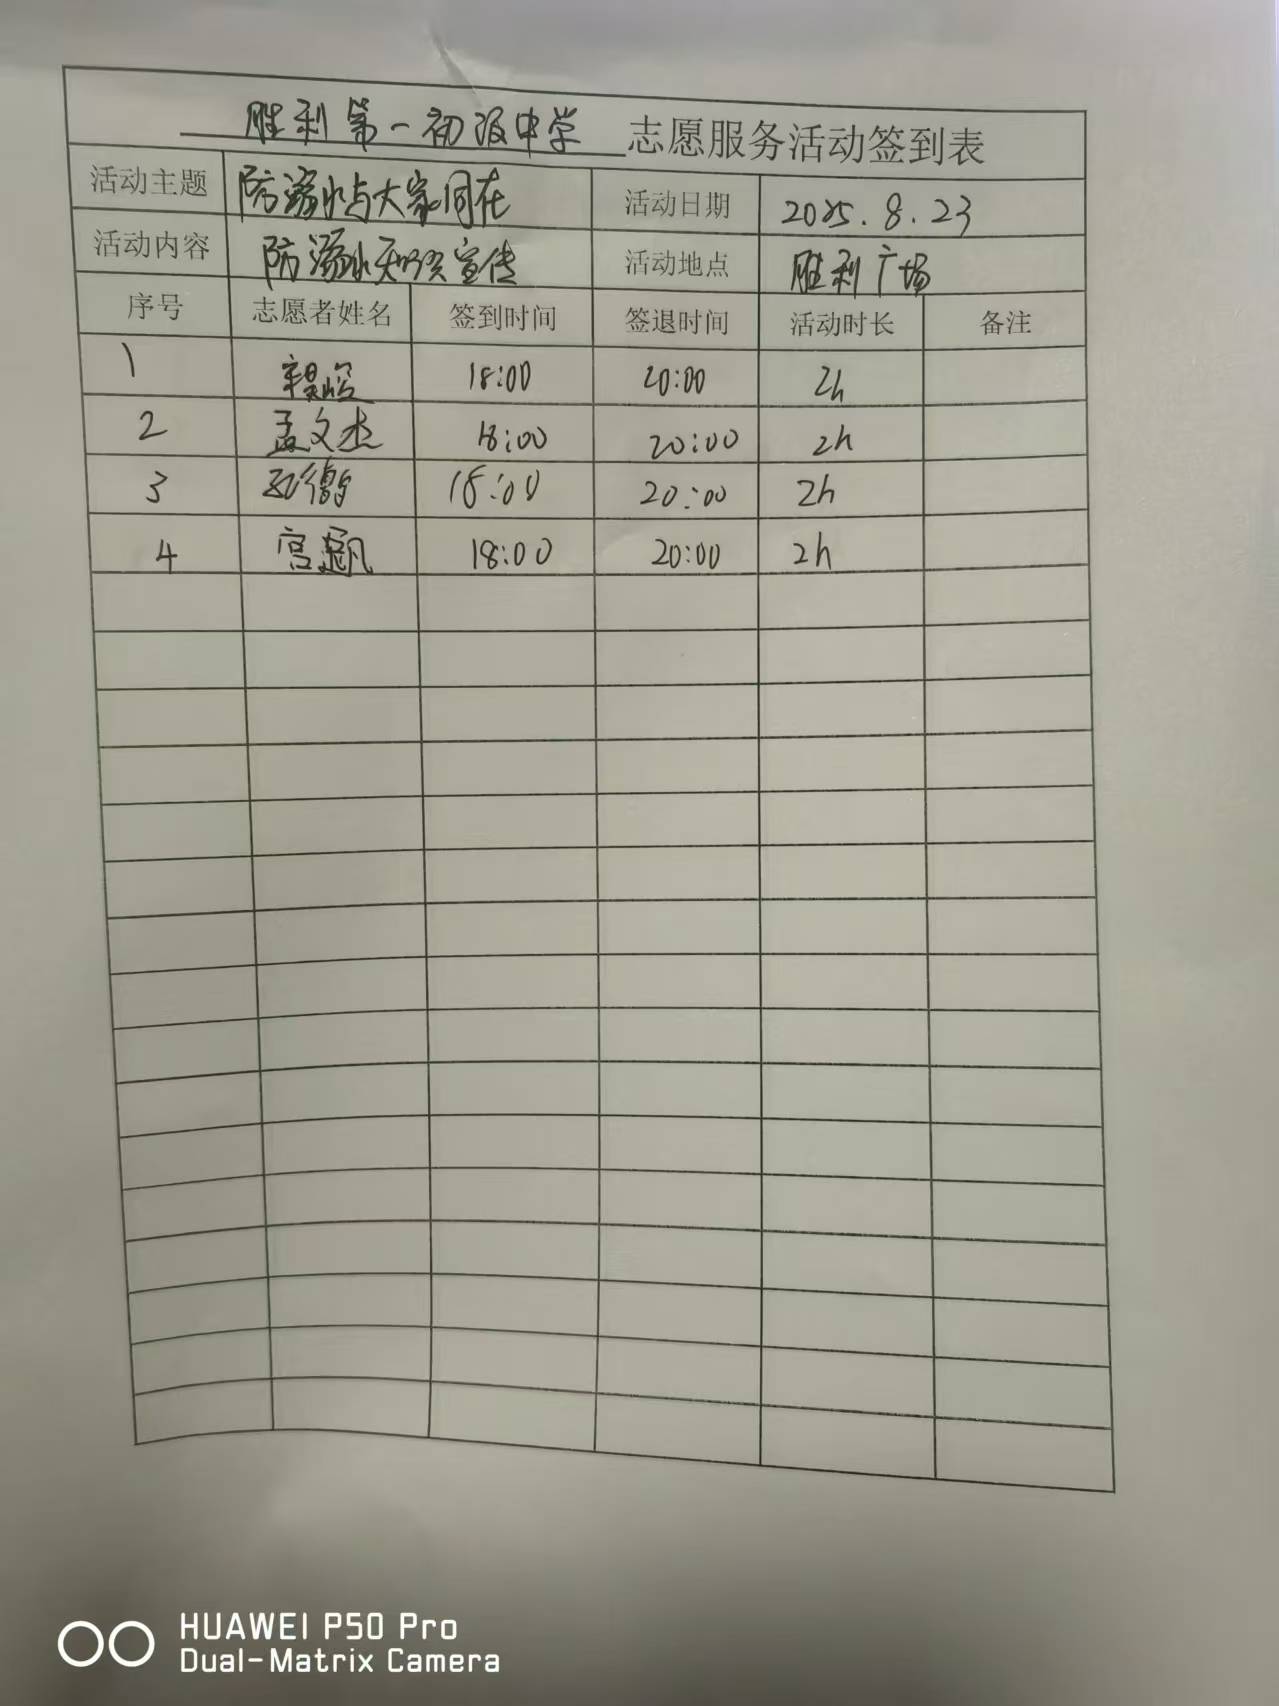 胜利第一初级中学 志愿服务活动签到表
活动主题 防溺水与大家同在 活动日期 2025.8.23
活动内容 防溺水知识宣传 活动地点 胜利广场
序号 志愿者姓名 签到时间 签退时间 活动时长 备注
1 18:00 20:00 2h
2 孟文杰 18:00 20:00 2h
3 18:00 20:00 2h
4 宫 18:00 20:00 2h
HUAWEI P50 Pro
Dual-Matrix Camera